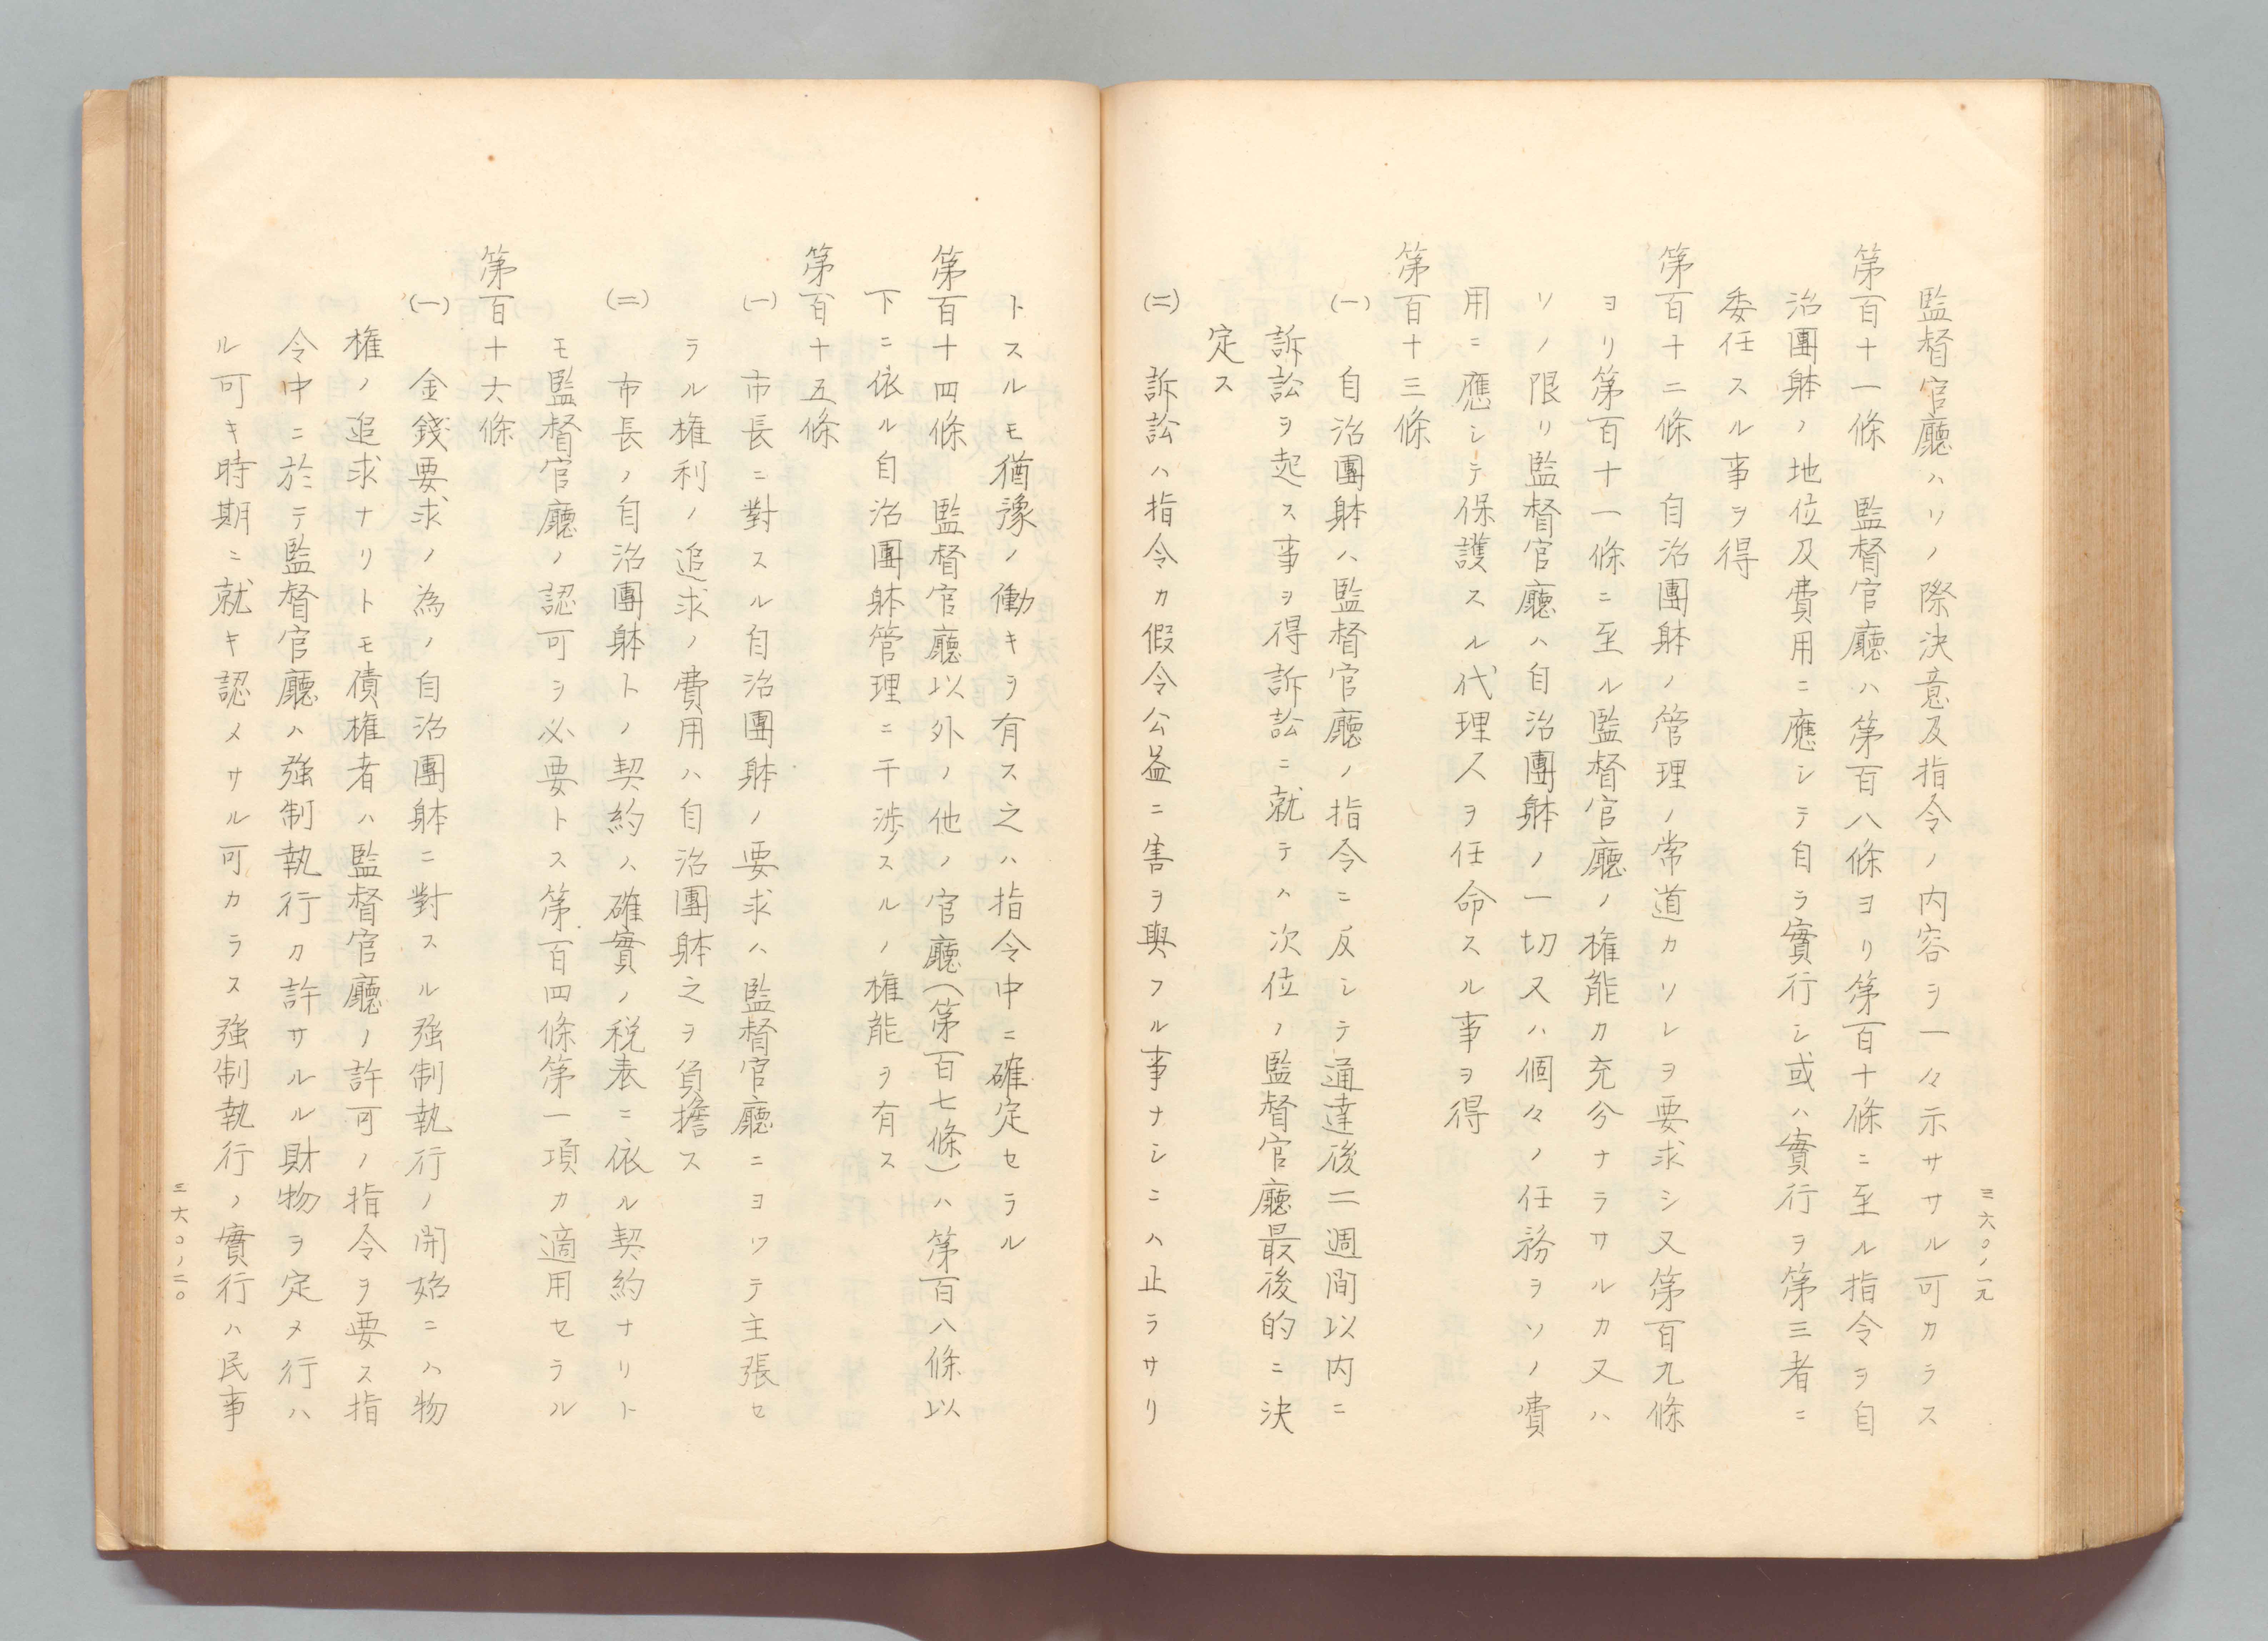 三六〇ノ一九
監督官廳ハソノ際決意及指令ノ内容ヲ一々示サザル可カラス
第百十一條　監督官廳ハ第百八條ヨリ第百十條ニ至ル指令ヲ自
治團躰ノ地位及費用ニ應シテ自ラ實行シ或ハ實行ヲ第三者ニ
委任スル事ヲ得
第百十二條　自治團躰ノ管理ノ常道カソレヲ要求シ又第百九條
ヨリ第百十一條ニ至ル監督官廳ノ権能カ充分ナラサルカ又ハ
ソノ限リ監督官廳ハ自治團躰ノ一切又ハ個々ノ任務ヲソノ費
用ニ應シテ保護スル代理人ヲ任命スル事ヲ得
第百十三條
(一)　自治團躰ハ監督官廳ノ指令ニ反シテ通達後二週間以内ニ
訴訟ヲ起ス事ヲ得訴訟ニ就テハ次位ノ監督官廳最後的ニ決
定ス
(二)　訴訟ハ指令カ假令公益ニ害ヲ與フル事ナシニハ止ラサリ
トスルモ猶豫ノ働キヲ有ス之ハ指令中ニ確定セラル
第百十四條　監督官廳以外ノ他ノ官廳(第百七條)ハ第百八條以
下ニ依ル自治團躰管理ニ干渉スルノ権能ヲ有ス
第百十五條
(一)　市長ニ對スル自治團躰ノ要求ハ監督官廳ニヨツテ主張セ
ラル権利ノ追求ノ費用ハ自治團躰之ヲ負擔ス
(二)　市長ノ自治團躰トノ契約ハ確實ノ税表ニ依ル契約ナリト
モ監督官廳ノ認可ヲ必要トス第百四條第一項カ適用セラル
第百十六條
(一)　金錢要求ノ為ノ自治團躰ニ對スル強制執行ノ開始ニハ物
権ノ追求ナリトモ債権者ハ監督官廳ノ許可ノ指令ヲ要ス指
令中ニ於テ監督官廳ハ強制執行カ許サルル財物ヲ定メ行ハ
ル可キ時期ニ就キ認メサル可カラス強制執行ノ實行ハ民事
三六〇ノ二〇